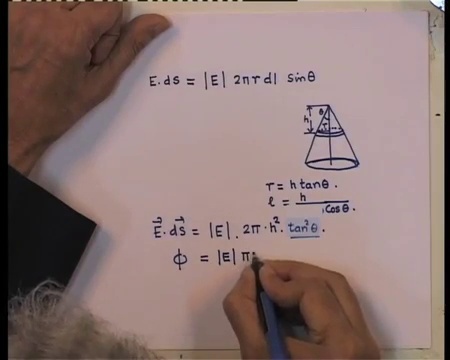 E. ds = |E| 2πr dl sinθ
θ
h
r
r = h tanθ.
ℓ = h / Cosθ.
E⃗. dS⃗ = |E| . 2π · h². tan²θ.
ϕ = |E| π